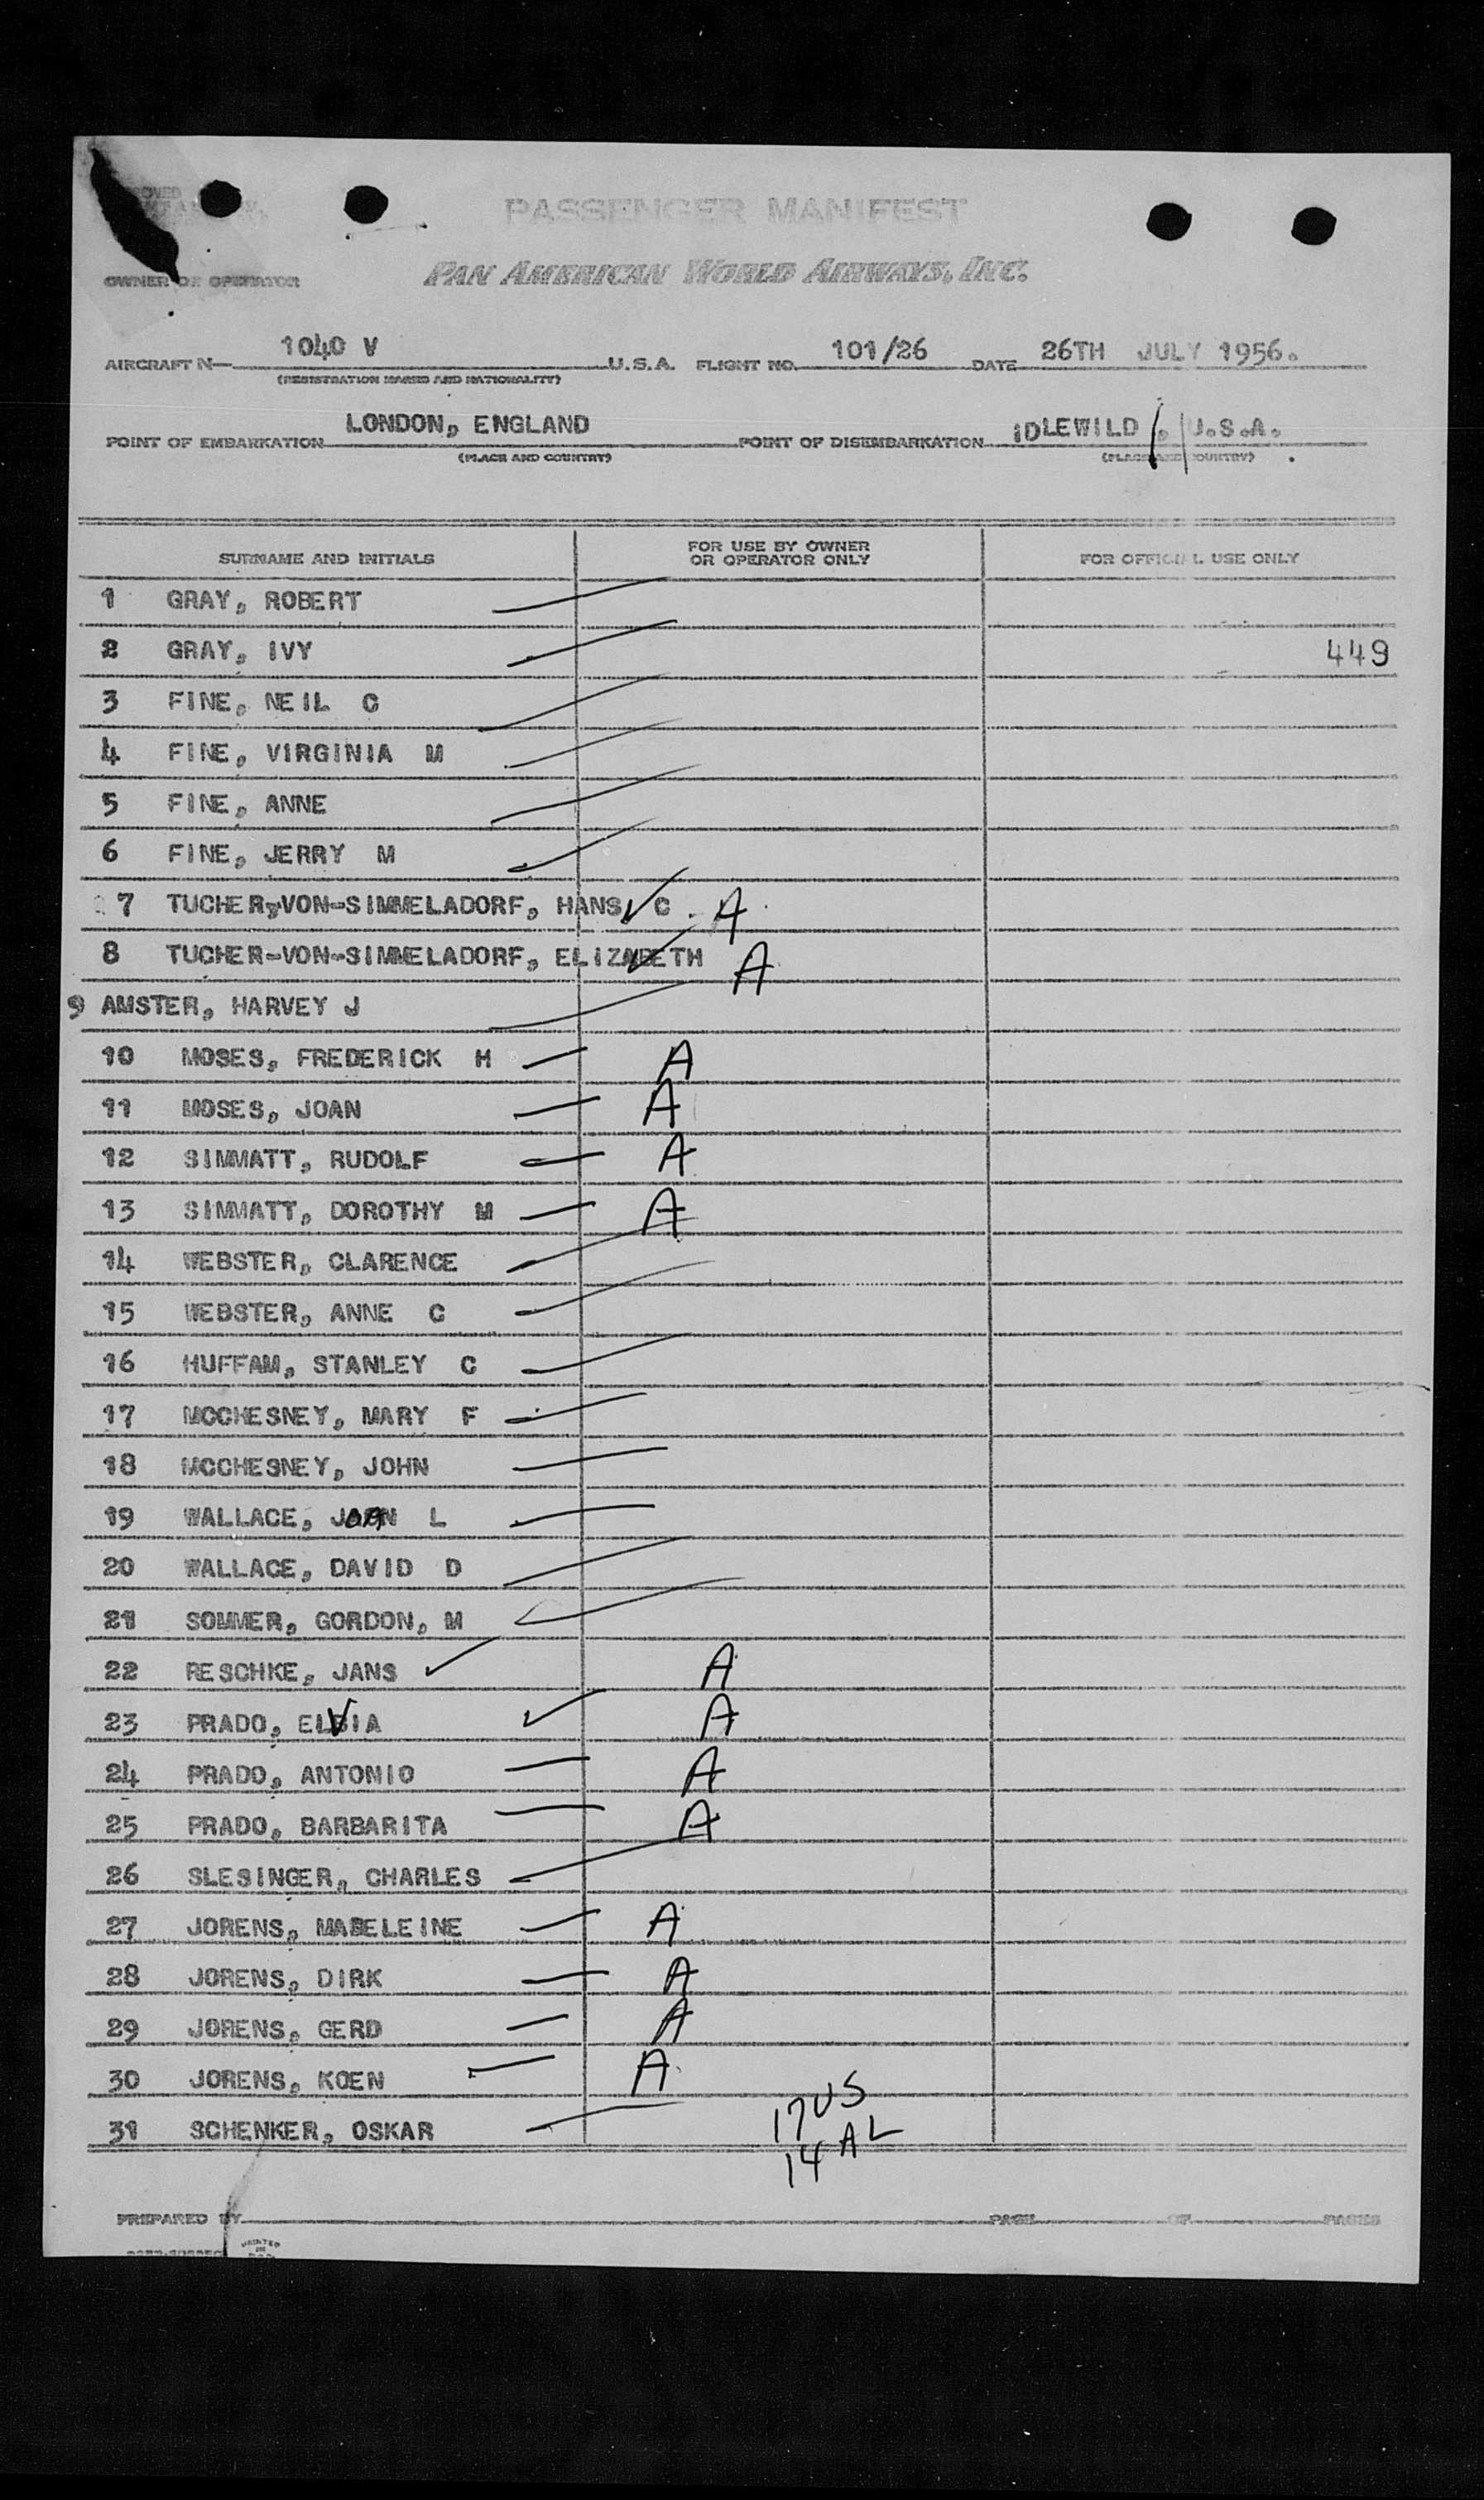 PASSENGER MANIFEST
OWNER OR OPERATOR PAN AMERICAN WORLD AIRWAYS, INC.
AIRCRAFT N- 1040 V U.S.A. FLIGHT NO. 101/26 DATE 26TH JULY 1956.
(REGISTRATION MARKS AND NATIONALITY)
POINT OF EMBARKATION LONDON, ENGLAND POINT OF DISEMBARKATION IDLEWILD, U.S.A.
(PLACE AND COUNTRY) (PLACE AND COUNTRY)
SURNAME AND INITIALS FOR USE BY OWNER OR OPERATOR ONLY FOR OFFICIAL USE ONLY
1 GRAY, ROBERT
2 GRAY, IVY 449
3 FINE, NEIL C
4 FINE, VIRGINIA M
5 FINE, ANNE
6 FINE, JERRY M
7 TUCHER-VON-SIMMELADORF, HANS C A
8 TUCHER-VON-SIMMELADORF, ELIZABETH A
9 AMSTER, HARVEY J
10 MOSES, FREDERICK H A
11 MOSES, JOAN A
12 SIMMATT, RUDOLF A
13 SIMMATT, DOROTHY M A
14 WEBSTER, CLARENCE
15 WEBSTER, ANNE C
16 HUFFAM, STANLEY C
17 MCCHESNEY, MARY F
18 MCCHESNEY, JOHN
19 WALLACE, JOAN L
20 WALLACE, DAVID D
21 SOMMER, GORDON, M
22 RESCHKE, JANS A
23 PRADO, ELVIA A
24 PRADO, ANTONIO A
25 PRADO, BARBARITA A
26 SLESINGER, CHARLES
27 JORENS, MADELEINE A
28 JORENS, DIRK A
29 JORENS, GERD A
30 JORENS, KOEN A
31 SCHENKER, OSKAR
17 US
14 AL
PREPARED BY PAGE OF PAGES